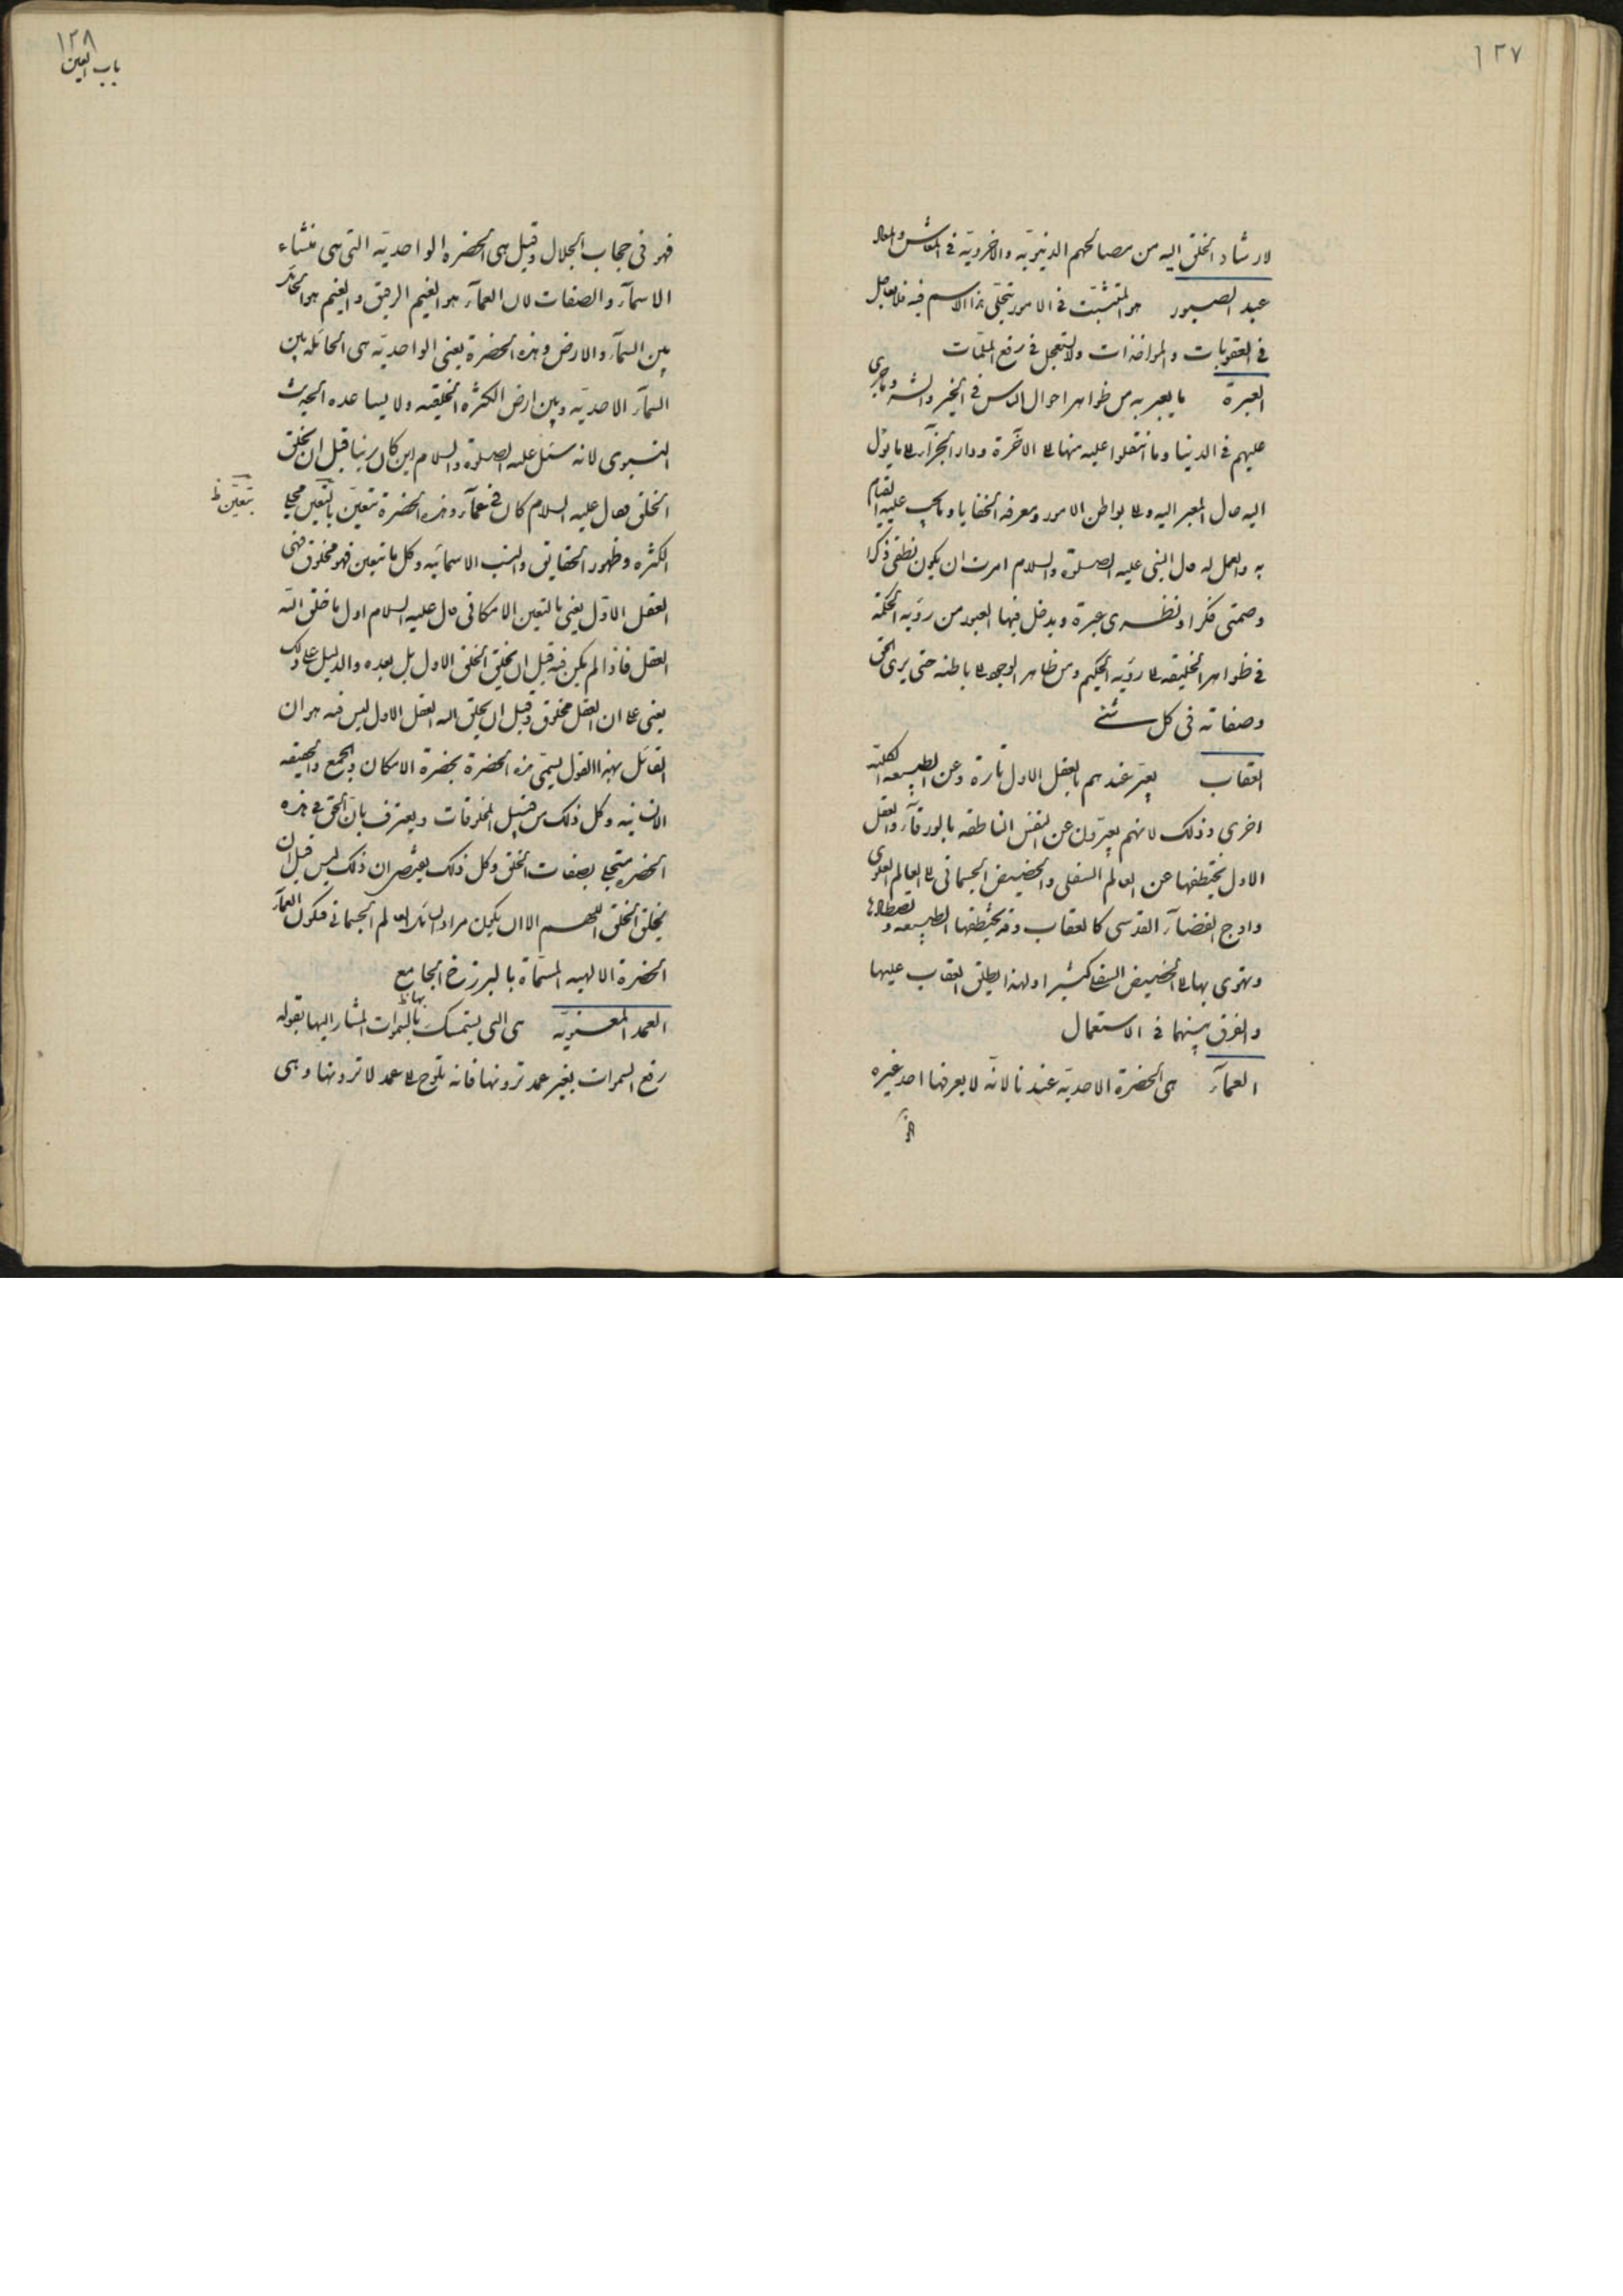 ١٢٧
لارشاد الخلق اليه من مصالحهم الدنيويّه والاخرويّه في المعاش والمعاد
عبد الصبور هو المتثبّت في الامور بتجلّى هذا الاسم فيه فلا يعاجل
في العقوبات والمؤاخذات ولا يستعجل في رفع الملمّات
العبرة ما يعبر به من ظواهر احوال الناس في الخير والشر وما جرى
عليهم في الدنيا وما انتقلوا عليه منها الى الآخرة ودار الجزآء الى ما يؤل
اليه حال المعبر اليه والى بواطن الامور ومعرفه الخفايا وما يجب عليه القيام
به والعمل له قال النبى عليه الصلوة والسلام امرت ان يكون نطقى ذكرا
وصمتى فكرا ونظرى عبرة ويدخل فيها العبور من رؤيه الحكمة
في ظواهر الخليقه الى رؤيه الحكيم ومن ظاهر الوجود الى باطنه حتى يرى الحق
وصفاته فى كل شئ
العقاب يعبّر عندهم بالعقل الاول تارة وعن الطبيعه الكليّة
اخرى وذلك لانهم يعبّرون عن النفس الناطقه بالورقآء والعقل
الاول يختطفها عن العالم السفلى والحضيض الجسمانى الى العالم العلوى
واوج الفضآء القدسى كالعقاب وقد يختطفها الطبيعه وتصطادها
وتهوى بها الى الحضيض السفلى كثيرا ولهذا يطلق العقاب عليها
والفرق بينهما في الاستعمال
العمآء هى الحضرة الاحديّة عندنا لانّه لا يعرفها احد غيره
١٢٨
باب العين
فهو فى حجاب الجلال وقيل هى الحضره الواحديّه التى هى منشاء
الاسمآء والصفات لان العمآء هو الغيم الرقيق والغيم هو الحائل
بين السمآء والارض وهذه الحضرة يعنى الواحديّه هى الحائله بين
السمآء الاحديّه وبين ارض الكثره الخليقه ولا يساعده الحديث
النبوى لانه سئل عليه الصلوة والسلام اين كان ربنا قبل ان يخلق
الخلق فقال عليه السلام كان فى عمآء وهذه الحضرة تتعيّن بالتعيّن محلى
بتعيّن ظ
الكثره وظهور الحقايق والنسب الاسمائيه وكل ما يتعين فهو مخلوق فهى
العقل الاوّل يعنى بالتعين الامكانى قال عليه السلام اول ما خلق الله
العقل فاذا لم يكن فيه قبل ان يخلق الخلق الاول بل بعده والدليل على ذلك
يعنى على ان العقل مخلوق وقبل ان يخلق الله العقل الاول ليس فيه هو ان
القائل بهذا القول يسمّى هذه الحضرة بحضرة الامكان والجمع والحقيقه
الانسانيه وكل ذلك من قبيل المخلوقات ويعترف بانّ الحق في هذه
الحضره متجلى بصفات الخلق وكل ذلك يقتضى ان ذلك ليس قبل ان
يخلق الخلق اللهم الا ان يكون مراد السائل العالم الجسمانى فيكون العمآء
الحضرة الالهيه المسمّاة بالبرزخ الجامع
العمد المعنويّه هى التى يستمسك بالسموات المشار اليها بقوله
بها ظ
رفع السموات بغير عمد ترونها فانه تلوح الى عمد لا ترونها وهى